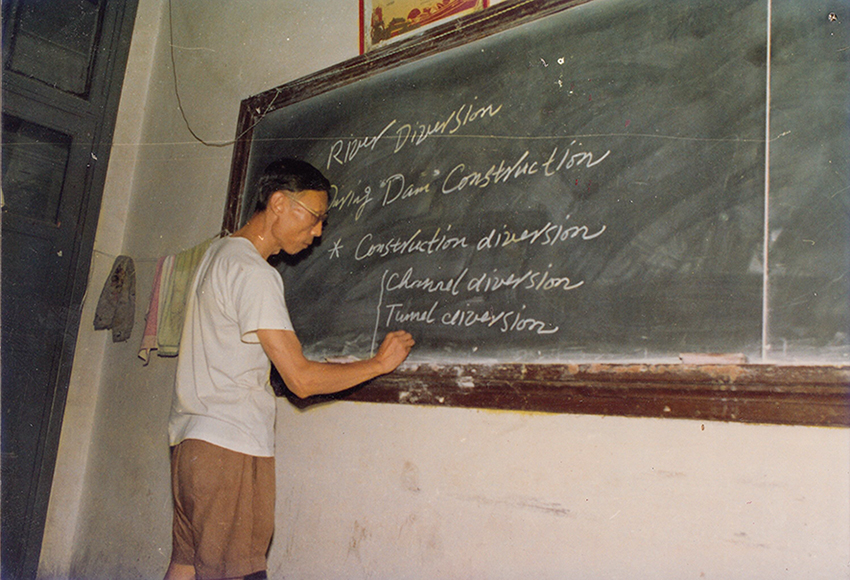 River Diversion
During "Dam" Construction
* Construction diversion
Channel diversion
Tunnel diversion